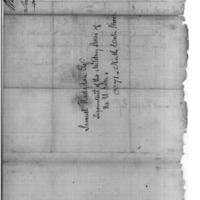 Samuel Hodgdon Esqr
Superintendent of the Military Stores of
the U. States
No 71. North Water Street